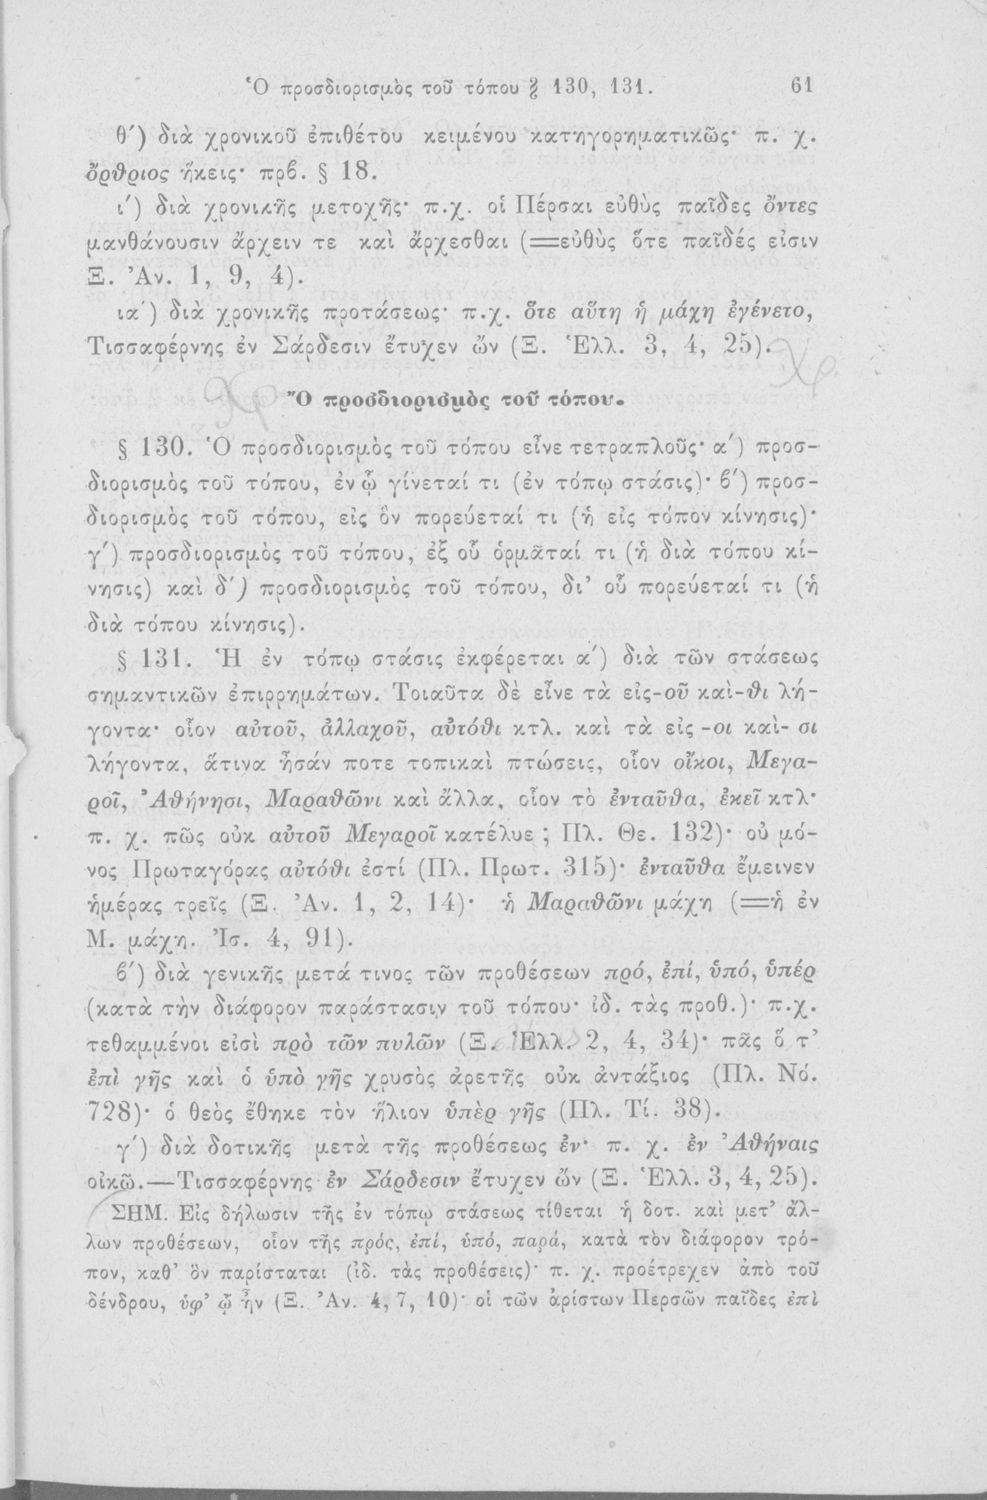 Ὁ προσδιορισμὸς τοῦ τόπου § 130, 131. 61
θ′) διὰ χρονικοῦ ἐπιθέτου κειμένου κατηγορηματικῶς· π. χ.
ὄρθριος ἥκεις· πρβ. § 18.
ι′) διὰ χρονικῆς μετοχῆς· π.χ. οἱ Πέρσαι εὐθὺς παῖδες ὄντες
μανθάνουσιν ἄρχειν τε καὶ ἄρχεσθαι (=εὐθὺς ὅτε παῖδές εἰσιν
Ξ. Ἀν. 1, 9, 4).
ια′) διὰ χρονικῆς προτάσεως· π.χ. ὅτε αὕτη ἡ μάχη ἐγένετο,
Τισσαφέρνης ἐν Σάρδεσιν ἔτυχεν ὤν (Ξ. Ἑλλ. 3, 4, 25).
Ὁ προσδιορισμὸς τοῦ τόπου.
§ 130. Ὁ προσδιορισμὸς τοῦ τόπου εἶνε τετραπλοῦς· α′) προσ-
διορισμὸς τοῦ τόπου, ἐν ᾧ γίνεταί τι (ἐν τόπῳ στάσις)· β′) προσ-
διορισμὸς τοῦ τόπου, εἰς ὃν πορεύεταί τι (ἡ εἰς τόπον κίνησις)·
γ′) προσδιορισμὸς τοῦ τόπου, ἐξ οὗ ὁρμᾶταί τι (ἡ διὰ τόπου κί-
νησις) καὶ δ′) προσδιορισμὸς τοῦ τόπου, δι’ οὗ πορεύεταί τι (ἡ
διὰ τόπου κίνησις).
§ 131. Ἡ ἐν τόπῳ στάσις ἐκφέρεται α′) διὰ τῶν στάσεως
σημαντικῶν ἐπιρρημάτων. Τοιαῦτα δὲ εἶνε τὰ εἰς-ου καὶ-θι λή-
γοντα· οἷον αὐτοῦ, ἀλλαχοῦ, αὐτόθι κτλ. καὶ τὰ εἰς -οι καὶ- σι
λήγοντα, ἅτινα ἦσάν ποτε τοπικαὶ πτώσεις, οἷον οἴκοι, Μεγα-
ροῖ, Ἀθήνησι, Μαραθῶνι καὶ ἄλλα, οἷον τὸ ἐνταῦθα, ἐκεῖ κτλ·
π. χ. πῶς οὐκ αὐτοῦ Μεγαροῖ κατέλυε ; Πλ. Θε. 132)· οὐ μό-
νος Πρωταγόρας αὐτόθι ἐστί (Πλ. Πρωτ. 315)· ἐνταῦθα ἔμεινεν
ἡμέρας τρεῖς (Ξ. Ἀν. 1, 2, 14)· ἡ Μαραθῶνι μάχη (=ἡ ἐν
Μ. μάχη. Ἰσ. 4, 91).
β′) διὰ γενικῆς μετά τινος τῶν προθέσεων πρό, ἐπί, ὑπό, ὑπέρ
(κατὰ τὴν διάφορον παράστασιν τοῦ τόπου· ἰδ. τὰς προθ.)· π.χ.
τεθαμμένοι εἰσὶ πρὸ τῶν πυλῶν (Ξ. Ἑλλ. 2, 4, 34)· πᾶς ὅ τ’
ἐπὶ γῆς καὶ ὁ ὑπὸ γῆς χρυσὸς ἀρετῆς οὐκ ἀντάξιος (Πλ. Νό.
728)· ὁ θεὸς ἔθηκε τὸν ἥλιον ὑπὲρ γῆς (Πλ. Τί. 38).
γ′) διὰ δοτικῆς μετὰ τῆς προθέσεως ἐν· π. χ. ἐν Ἀθήναις
οἰκῶ.—Τισσαφέρνης ἐν Σάρδεσιν ἔτυχεν ὤν (Ξ. Ἑλλ. 3, 4, 25).
ΣΗΜ. Εἰς δήλωσιν τῆς ἐν τόπῳ στάσεως τίθεται ἡ δοτ. καὶ μετ’ ἄλ-
λων προθέσεων, οἷον τῆς πρός, ἐπί, ὑπό, παρά, κατὰ τὸν διάφορον τρό-
πον, καθ’ ὃν παρίσταται (ἰδ. τὰς προθέσεις)· π. χ. προέτρεχεν ἀπὸ τοῦ
δένδρου, ὑφ’ ᾧ ἦν (Ξ. Ἀν. 4, 7, 10)· οἱ τῶν ἀρίστων Περσῶν παῖδες ἐπὶ